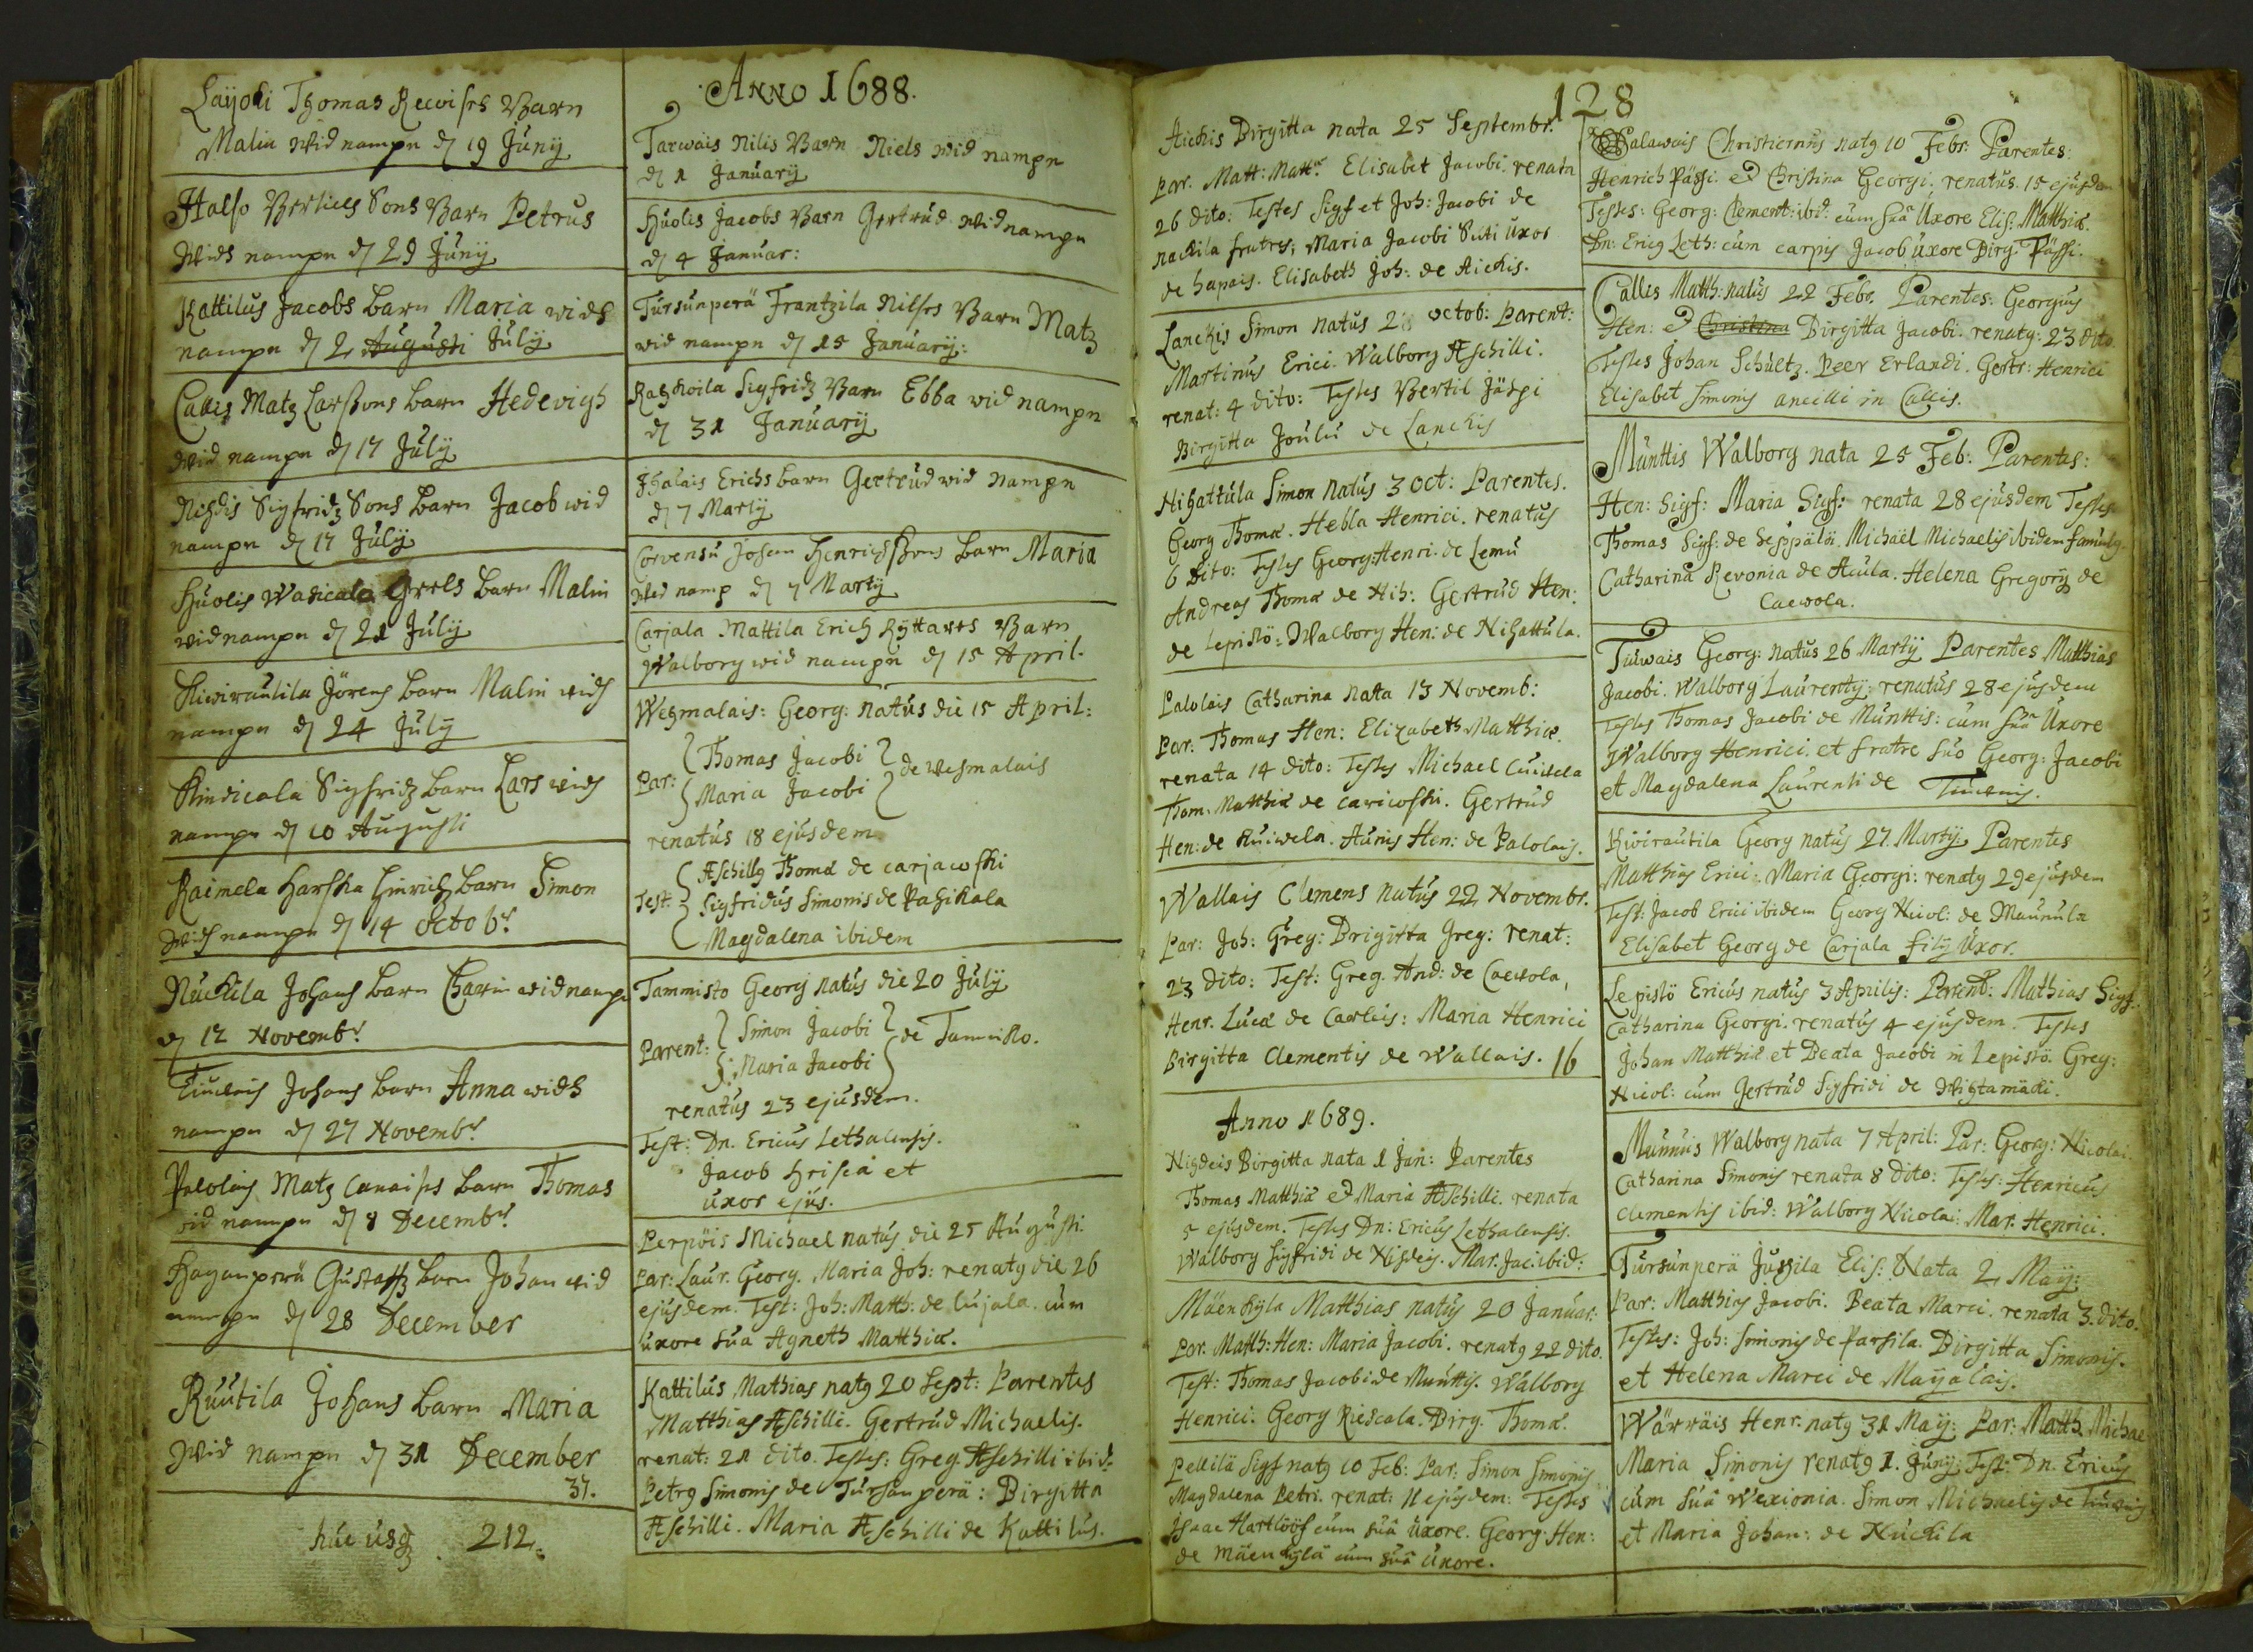 Layoki Thomas Rewisrs Barn
Malin wid nampn d 19 Junij
Halso Bertiels Sons Barn Petrus
widh nampn d 29 Junij
Kattilus Jacobs barn Maria widh
nampn d 2 Augusti July
Callis Matz Larssons barn Hedevigh
wid nampn d 17 July
Nihdis Sigfridz Sons barn Jacob wid
nampn d 17 July
Huolis Wadicala Grels barn Malin
wid nampn d 21 July
Kiwirautila Jörens barn Malin widh
nampn d 24 July
Kindicala Sigfridz barn Lars widh
nampn d 10 Augusti
Raimela Harska Hinrichz barn Simon
widh nampn d 14 Octobr
Nuckila Johans barn Charin wid nampn
d 12 Novembr
Tiuwais Johans barn Anna widh
nampn d 27 Novembr
Palolais Matz Canaisrs barn Thomas
wid nampn d 8 Decembr
Haganperä Gustaffz barn Johan wid
nampn d 28 December
Ruutila Johans barn Maria
wid nampn d 31 December
37.
huc usq 212.
Anno 1688.
Tarwais Nilis Barn Niels wid nampn
d 1 January
Huolis Jacobs Barn Gertrud wid nampn
d 4 Januar:
Tursunperä Frantzila Nilsrs Barn Matz
wid nampn d 15 January:
Katzkoila Sigfridz Barn Ebba wid nampn
d 31 January
Ihalais Erichs barn Gertrud wid nampn
d 7 Marty
Corvensu Johan Henrichssons barn Maria
wid namp d 7 Marty
Carjala Mattila Erich Ryttares Barn
Walborg wid nampn d 15 April.
Wehmalais: Georg: natus die 15 April:
Par: Thomas Jacobi
Maria Jacobi de Wehmalais
renatus 18 ejusdem
Test: Aschillg Thomæ de carjacoski
Sigfridus Simonis de Pahikala
Magdalena ibidem
Tammisto Georg natus die 20 July
Parent: Simon Jacobi
Maria Jacobi de Tammisto.
renatus 23 ejusdem.
Test: Dn. Ericus Lethalensis.
Jacob Hriscä et
uxor ejus.
Perpöis Michael natus die 25 Augusti
Par: Laur. Georg. Maria Joh: renatg die 26
ejusdem. Test: Joh: Matth: de Cujala. cum
uxore sua Agneth Matthiæ.
Kattilus Mathias natg 20 Sept: Parentes
Matthias Aschilli. Gertrud Michaelis.
renat: 21 dito. Testes: Greg. Aschilli ibid:
Petrg Simonis de Tursunperä: Birgitta
Aschilli. Maria Aschilli de Kattilus.
128
Aickis Birgitta nata 25 Septembr.
Par. Matt: Matt: Elisabet Jacobi. renata
26 dito: Testes Sigf et Joh: Jacobi de
nackila fratres; Maria Jacobi Suti uxor
de hapais. Elisabeth Joh: de Aickis.
Lanckis Simon natus 2 octob: Parent:
Martinus Erici. Walborg Aschilli.
renat: 4 dito: Testes Bertil Jäspi
Birgitta Joulu de Lanckis
Nihattula Simon natus 3 oct: Parentes.
Georg Thomæ. Hebla Henrici. renatus
6 dito: Testes Georg: Henri: de Lemu
Andreas Thomæ de Nih: Gertrud Hen:
de Lepistö: Walborg Hen: de Nihattula.
Palolais Catharina nata 13 Novemb:
Par. Thomas Hen: Elizabeth Matthiæ.
renata 14 dito: Testes Michael Cuiwela
Thom. Matthiæ de caricoski. Gertrud
Hen: de Kuiwela. Aunis Hen: de Palolais.
Wallais Clemens natus 22 Novembr.
Par: Joh: Greg: Brigitta Greg: renat:
23 dito: Test: Greg. And: de Caewola,
Henr. Lucæ de Caerleis: Maria Henrici
Birgitta Clementis de Wallais. 16
Anno 1689.
Nihdeis Birgitta nata 1 Jan: Parentes
Thomas Matthiæ et Maria Aschilli. renata
5 ejusdem. Testes Dn: Ericus Lethalensis.
Walborg Sigfridi de Nihdeis. Mar. Jac. ibid:
Mäenkyla Matthias natus 20 Januar:
Par. Matth: Hen: Maria Jacobi. renatg 22 dito.
Test: Thomas Jacobi de Munttis. Walborg
Henrici. Georg Riescala. Birg. Thomæ.
Pellilä Sigf natg 10 Feb: Par: Simon Simonis
Magdalena Petri. renat: 11 ejusdem: Testes
Isaac Hartlööf cum suâ uxore. Georg: Hen:
de mäenkylä cum suâ uxore.
Salawais Christiernus natg 10 Febr: Parentes:
Henrich Pässi. et Christina Georgi. renatus. 15 ejusdem
Testes: Georg: Clement: ibid: cum suâ Uxore Elis: Matthiæ.
Dn: Ericg Leth: cum carpis Jacob uxore Birg: Pässi.
Callis Matth: natus 22 Febr. Parentes: Georgius
Hen: et Christina Birgitta Jacobi. renatg: 23 dito.
Testes Johan Schultz. Peer Erlandi. Gertr: Henrici
Elisabet Simonis ancilli in Callis.
Munttis Walborg nata 25 Feb: Parentes:
Hen: Sigf: Maria Sigf: renata 28 ejusdem Testes
Thomas Sigf: de Seppälöi. Michaël Michaelis ibidem famulg.
Catharina Revonia de Aiula. Helena Gregorij de
Caewola.
Tuwais Georg: natus 26 Marty Parentes Matthias
Jacobi. Walborg Laurentij: renatus 28 ejusdem
Testes Thomas Jacobi de Munttis: cum suâ Uxore
Walborg Henrici. et fratre suo Georg: Jacobi
et Magdalena Laurenti de Tiuwais.
Kiwirautila Georg natus 27. Marty: Parentes
Matthias Erici: Maria Georgi: renatg 29 ejusdem
Test: Jacob Erici ibidem Georg Nicol: de Maunula
Elisabet Georg de Carjala filij Uxor.
Lepistö Ericus natus 3 Aprilis: Parent: Mathias Sigf.
Catharina Georgi. renatus 4 ejusdem. Testes
Johan Matthiæ et Beata Jacobi in Lepistö. Greg:
Nicol: cum Gertrud Sigfridi de Wihtamäcki.
Munnuis Walborg nata 7 April: Par: Georg: Nicolai.
Catharina Simonis renata 8 dito: Testes: Henricus
Clementis ibid: Walborg Nicolai: Mar. Henrici.
Tursunperä Jussila Elis: Nata 2 Maij:
Par: Matthias Jacobi. Beata Marci. renata 3. dito.
Testes: Joh: Simonis de Parsila. Birgitta Simonis.
et Helena Marci de Mayalais.
Wärräis Henr. natg 31 May: Par: Matth. Michae
Maria Simonis renatg 1. Junij: Test: Dn. Ericus
cum suâ Wexionia. Simon Michaelis de Tiuwais
et Maria Johan: de Nuckila